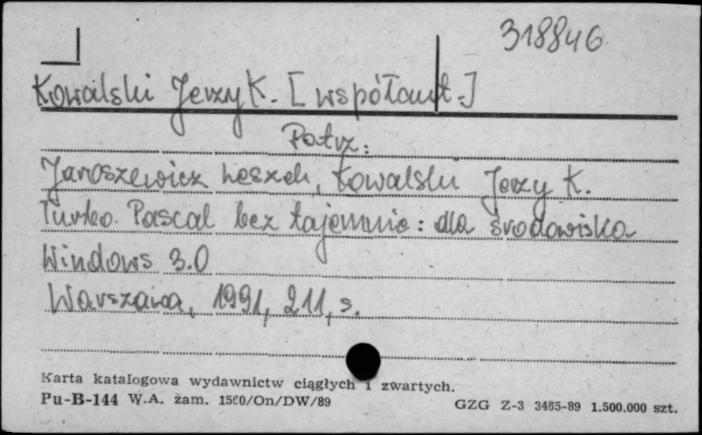 318846
Kowalski Jerzy K. [współaut.]
Patrz:
Jaroszewicz Leszek, Kowalski Jerzy K.
Turbo Pascal bez tajemnic: dla środowiska
Windows 3.0
Warszawa, 1991, 211, s.
Karta katalogowa wydawnictw ciągłych i zwartych.
Pu-B-144 W.A. zam. 1560/On/DW/89 GZG Z-3 3465-89 1.500.000 szt.